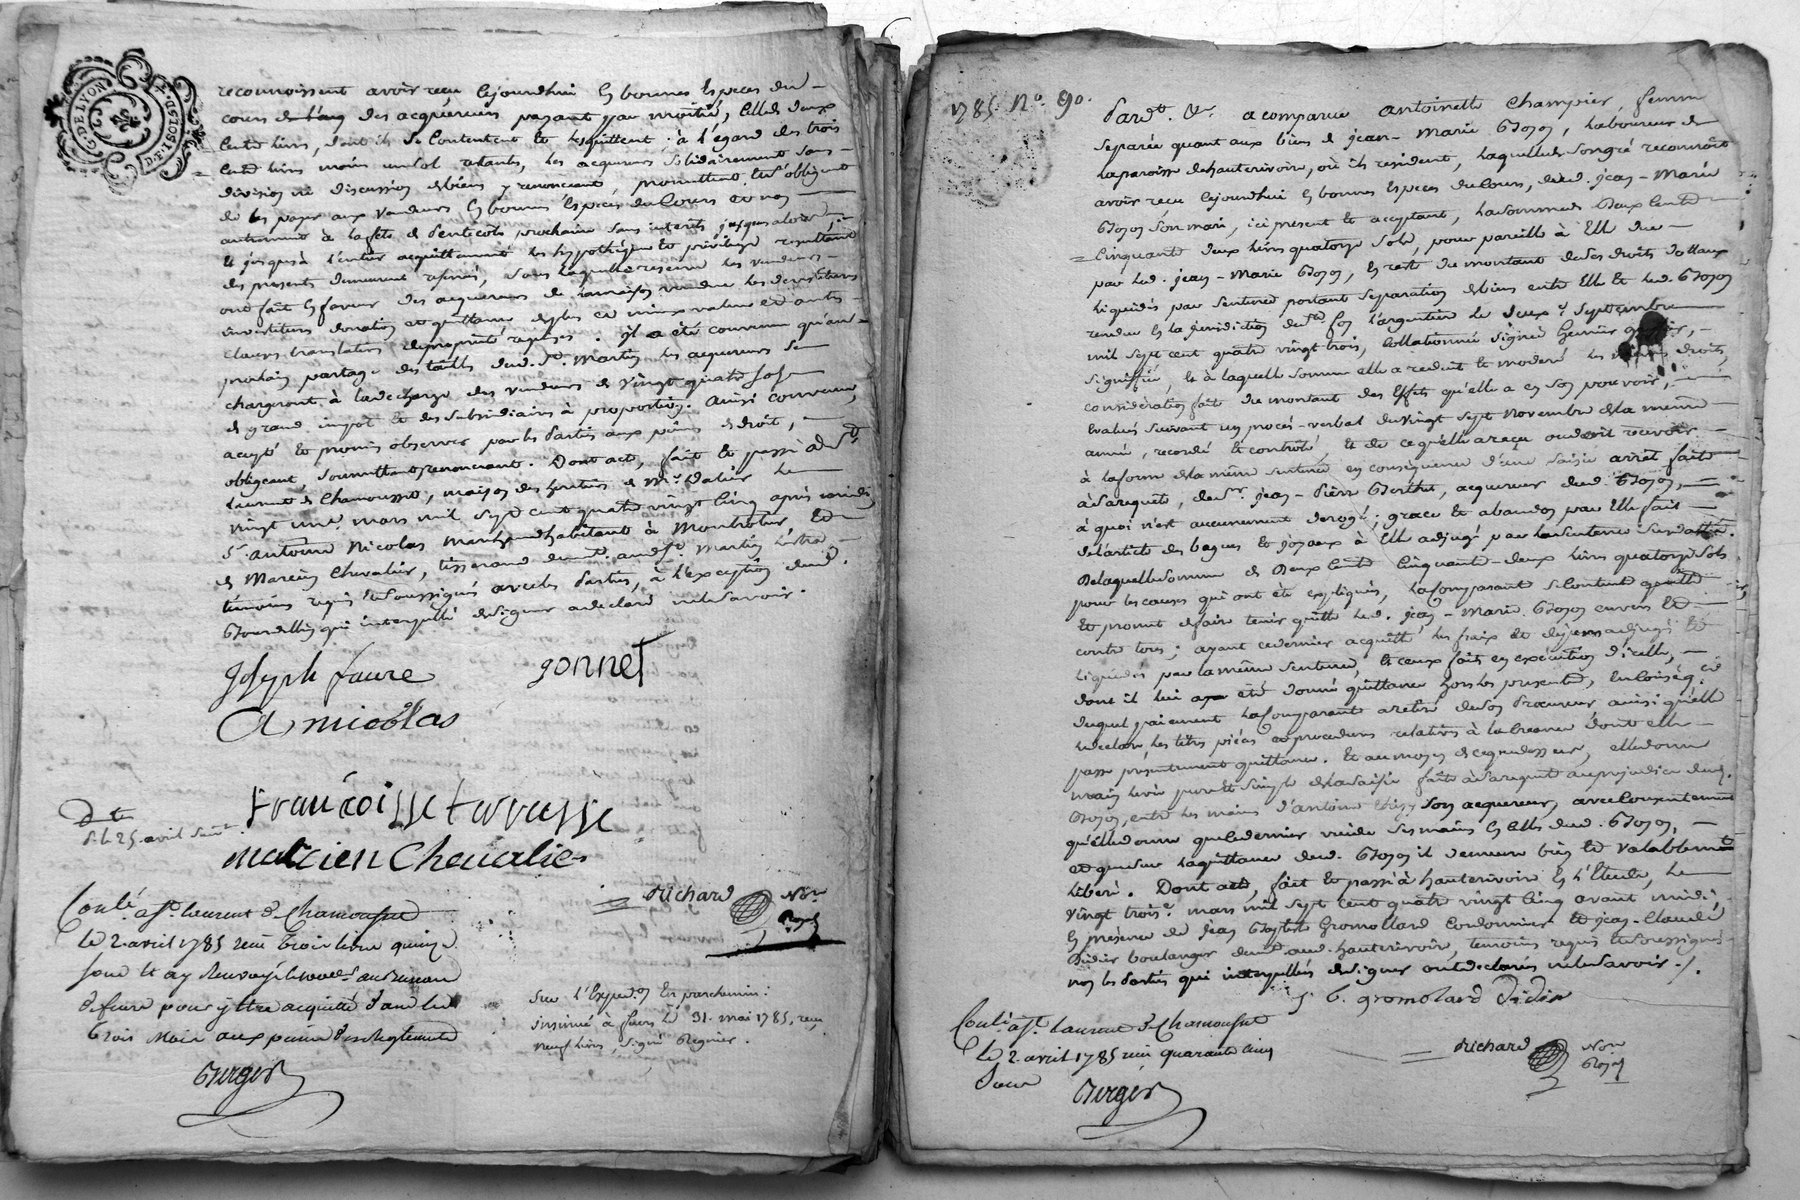 G. DE LYON
reconnoissent avoir reçu cejourdhui En bonnes Especes du
cours des acquereurs payant par moitié, Celle de deux
Cents livres, dont ils se Contentent et les quittent; à l'égard des trois
Cents livres moins un sol restants, les acquereurs solidairement sans
division ni discussion de biens y renonceant, promettent Et s'obligent
de les payer aux vendeurs En bonnes Especes du Cours et non
autrement à la fête de Pentecote prochaine sans interêts jusques alors,
Et jusqu'à l'entier acquittement les hypothéques et privilege resultant
des presents demeurent reservés, sous laquelle reserve les vendeurs
ont fait En faveur des acquereurs de la maison vendue les devestitions
investitures donation et quittance de plus et mieux value et autres
clauses translatives de proprieté requises. il a été convenu qu'au
prochain partage des tailles dud. St. Martin les acquereurs se
chargeront à la decharge des vendeurs de vingt quatre sols
de grand impot Et des subsidiaires à proportion. Ainsi convenu,
accepté Et promis observer par les Parties aux peines de droit,
obligeant, soumettant renonceant. Dont acte, fait Et passé à St.
Laurent de Chamousset, maison des heritiers de Mr. Dalier Le
vingt un.e mars mil sept cent quatre vingt Cinq après midi,
Sr. antoine Nicolas marchand habitant à Montrotier, Et
de Marcien Chevalier, tisserand demt. aud. St. Martin Lestra,
temoins requis Et soussignés avec les Parties, à l'exception dud.
Bourdillin qui interpellé de signer a declaré ne le savoir.
Joseph faure gonnet
A nicolas
Francoisse terrasse
marcien Chevalier
Richard Nore.
Royal
Dt
S.L. 25. avril
Conlé. a St. Laurent de Chamousset
le 2. avril 1785 reçu trois livres quinze
sous et ay renvoyé au Bureau
de feurs pour y être acquitté dans les
trois mois aux peines des Reglements
Berger
Sur l'Exped.on En parchemin:
insinué à feurs le 31. mai 1785, reçu
neuf livres, signé Regnier.
1785 No. 90.
Pard.t &c. a comparue antoinette Champier, femme
separée quant aux biens de jean-Marie Goyon, Laboureur de
la paroisse de hauterivoire, où ils resident, laquelle de son gré reconnoit
avoir reçu cejourdhui En bonnes Especes du Cours, dud. jean-Marie
Goyon son mari, ici present Et acceptant, la somme de Deux Cents
Cinquante deux livres quatorze sols, pour pareille à Elle due
par led. jean-Marie Goyon, En reste du montant de ses droits dottaux
liquidés par sentence portant separation de biens entre Elle Et led. Goyon
rendue En la jurisdiction de fon l'argentiere Le deux.e septembre
mil sept cent quatre vingt trois, Collationnée signée
signiffiée, Et à laquelle somme elle a reduit Et moderé les droits,
consideration faite du montant des Effets qu'elle a En son pouvoir,
Evalués suivant un procès-verbal du vingt sept Novembre de la même
année, recordé Et controlé, Et de ce qu'elle a reçu ou doit recevoir
à la forme de la même sentence en consequence d'une saisie arrêt faite
à sa requete, du Sr. jean-Pierre Berthet, acquereur dud. Goyon,
à quoi n'est aucunement derogé; grace Et abandon par Elle fait
de l'article des bagues Et joyaux à Elle adjugé par la sentence susdattée.
De laquelle somme de Deux Cents Cinquante-deux livres quatorze sols
pour les causes qui ont été expliquées, la Comparant se Contente quitte
Et promet de faire tenir quitte led. jean-Marie Goyon envers Et
contre tous; ayant ce dernier acquitté les frais Et depens adjugés Et
liquidés par la même sentence, Et ceux faits en execution d'icelle,
dont il lui a été donné quittance hors les presentes,
duquel paiement la Comparant a retiré de son Procureur ainsi qu'elle
le declare les titres piéces et procedures relatives à la creance dont elle
passe presentement quittance. Et au moyen de ce que dessus, elle donne
main levée pure Et simple de la saisie faite à sa requete au prejudice dud.
Goyon, entre les mains d'antoine son acquereur, avec Consentement
qu'elle donne que ce dernier vuide ses mains En Celles dud. Goyon,
et que sur la quittance dud. Goyon il demeure bien Et valablement
liberé. Dont acte, fait Et passé à hauterivoire En l'Etude, Le
vingt trois.e mars mil sept cent quatre vingt Cinq avant midi,
En presence de jean Baptiste Gromollard Cordonnier Et jean-Claude
Didier boulanger demt. aud. hauterivoire, temoins requis Et soussignés
non les Parties qui interpellées de signer ont declarés ne le savoir./.
j. b. gromolard Didier
Conlé a St. Laurent de Chamousset
le 2. avril 1785 reçu quarante cinq
sous
Berger
Richard Nore
Royal